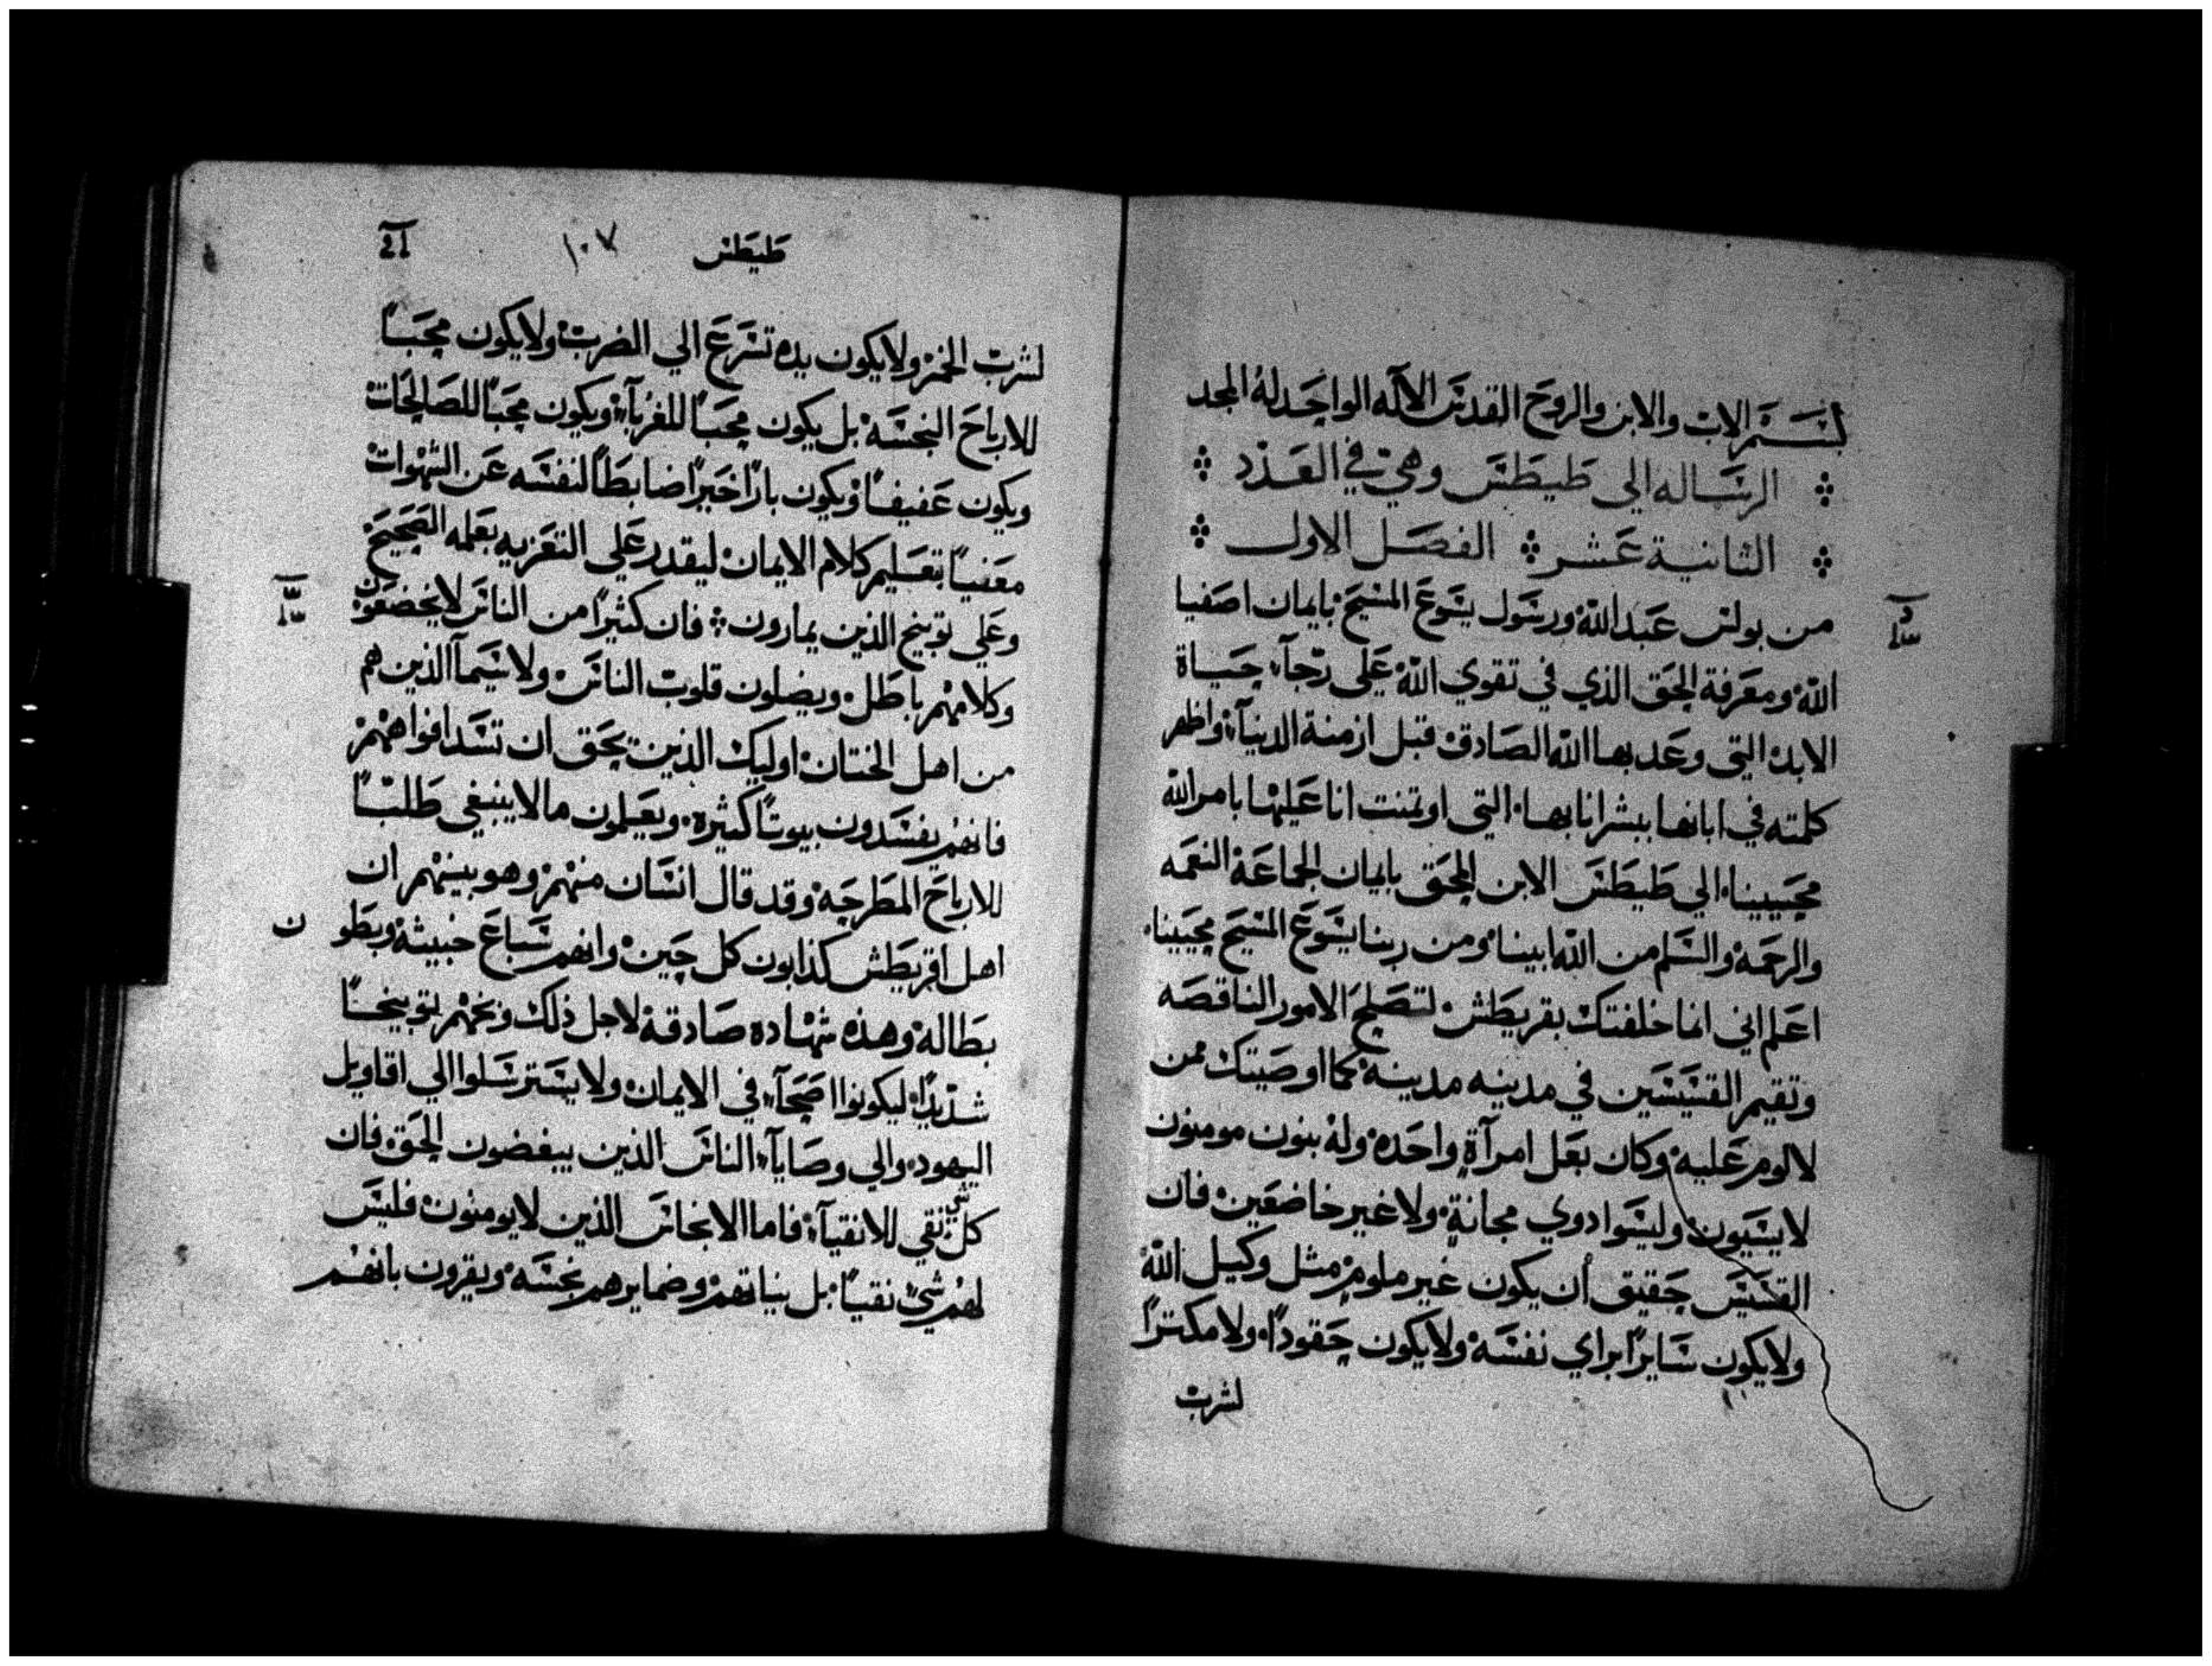 بسم الاب والابن والروح القدس الاله الواحد له المجد
الرساله الي طيطس وهي في العدد
الثانية عشر الفصل الاول
من بولس عبد الله ورسول يسوع المسيح بايمان اصفيا
الله ومعرفة الحق الذي في تقوي الله علي رجآء حياة
الابد التي وعد بها الله الصادق قبل ازمنة الدنيآ واظهر
كلمته في ابانها ببشرانا بها التي اوتمنت انا عليها بامر الله
محيينا الي طيطس الابن المحق بايمان الجماعة النعمه
والرحمة والسلم من الله ابينا ومن ربنا يسوع المسيح محيينا
اعلم اني انما خلفتك بقريطش لتصلح الامور الناقصه
وتقيم القسيسين في مدينه مدينة كما اوصيتك ممن
لا لوم عليه وكان بعل امرآة واحده وله بنون مومنون
لا يسبون وليسوا دوي مجانة ولا غير خاضعين فان
القسيس حقيق أن يكون غير ملوم مثل وكيل الله
ولا يكون سايرا براي نفسه ولا يكون حقودا ولا مكترا
لشرب
طيطس ١٠٧
لشرب الخمر ولا يكون يده تسرع الي الضرب ولا يكون محبا
للارباح النجسه بل يكون محبا للغربآء ويكون محبا للصالحات
ويكون عفيفا ويكون بارا خيرا ضابطا لنفسه عن الشهوات
معنيا بتعليم كلام الايمان ليقدر علي التعزيه بعلمه الصحيح
وعلي توبيخ الذين يمارون فان كثيرا من الناس لا يخضعون
وكلامهم باطل ويضلون قلوب الناس ولا سيمآ الذين هم
من اهل الختان اوليك الذين يحق ان تسد افواههم
فانهم يفسدون بيوتا كثيرة ويعلمون ما لا ينبغي طلبا
للارباح المطرحة وقد قال انسان منهم وهو بينهم ان
اهل اقريطش كذابون كل حين وانهم سباع خبيثة وبطون
بطالة وهذه شهاده صادقة لاجل ذلك وبخهم توبيخا
شديدا ليكونوا اصحآء في الايمان ولا يسترسلوا الي اقاويل
اليهود والي وصايآ الناس الذين يبغضون الحق فان
كل شي نقي للانقيآء فاما الانجاس الذين لا يومنون فليس
لهم شي نقيا بل نياتهم وضمايرهم نجسه ويقرون بانهم